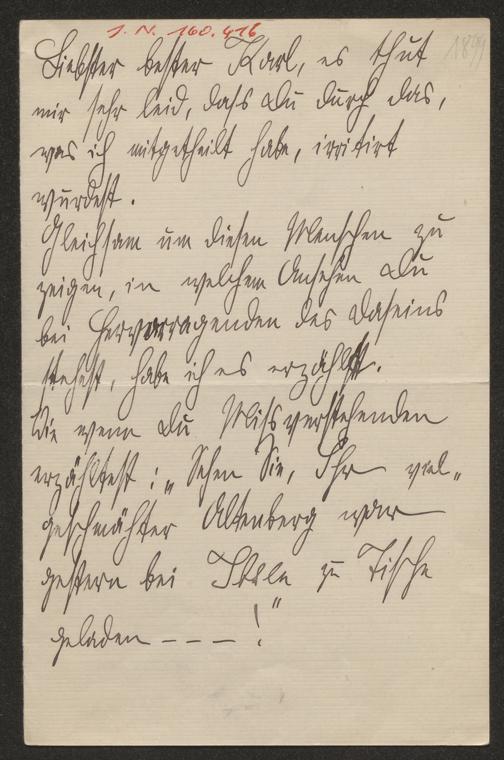 J. N. 160.416
1899
Liebster bester Karl, es thut
mir sehr leid, dass Du durch das,
was ich mitgetheilt habe, irritirt
wurdest.
Gleichsam um diesen Menschen zu
zeigen, in welchem Ansehen Du
bei Hervorragenden des Daseins
stehest, habe ich es erzählt.
Wie wenn Du Missverstehenden
erzähltest: „Sehen Sie, Ihr viel„
geschmähter Altenberg war
gestern bei Ibsen zu Tische
geladen – – – !"